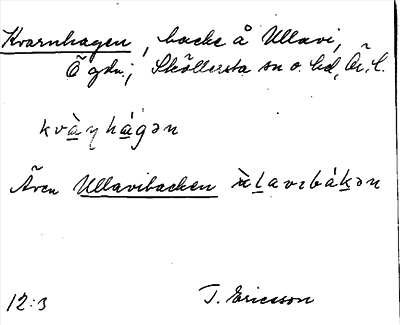 Kvarnhagen, backe å Ullavi,
Ö gdn.; Sköllersta sn o. hd, Ör. l.
kvàɳhágən
Även Ullavibacken ùlavɪbákən
12:3 T. Ericsson